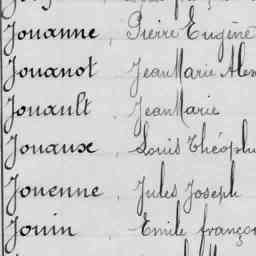 Jouanne, Pierre Eugène
Jouanot Jean Marie Alex
Jouault, Jean Marie
Jouaux, Louis Théophi
Jouenne, Jules Joseph
Jouin, Emile françoi